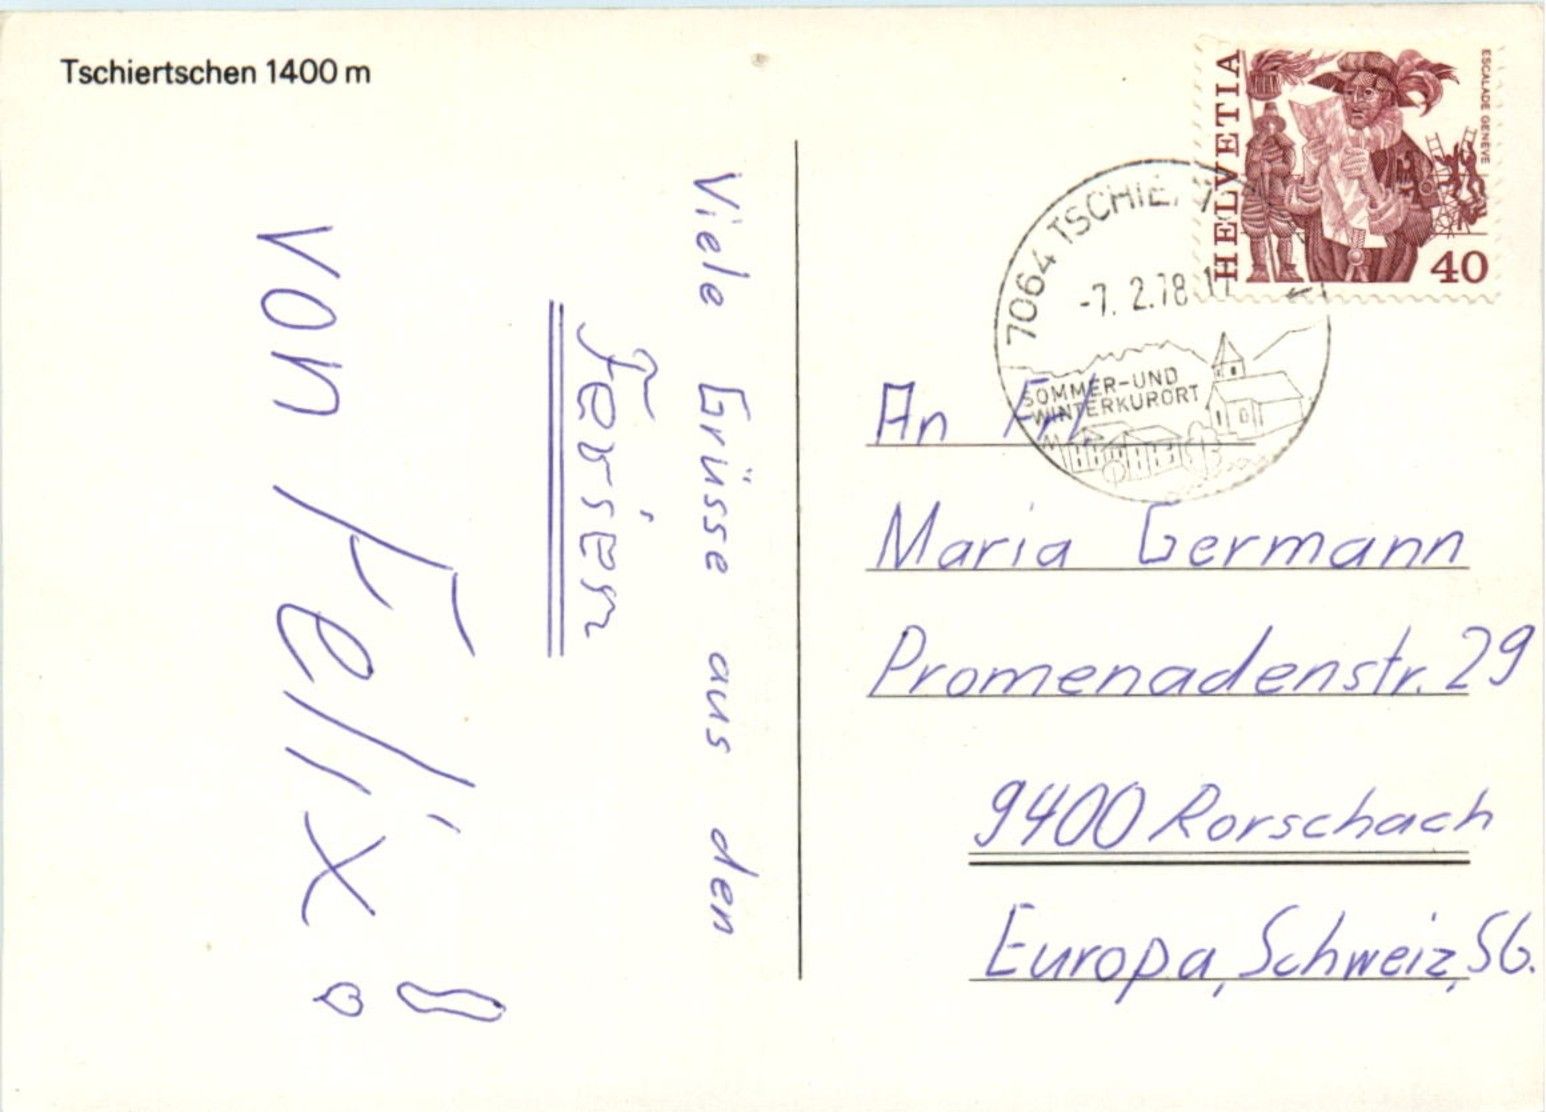 Tschiertschen 1400 m
HELVETIA
ESCALADE GENÈVE
40
7064
-7. 2.78
SOMMER-UND
WINTERKURORT
Viele Grüsse aus den
Ferien
von Felix!
An Frl.
Maria Germann
Promenadenstr. 29
9400 Rorschach
Europa, Schweiz, SG.